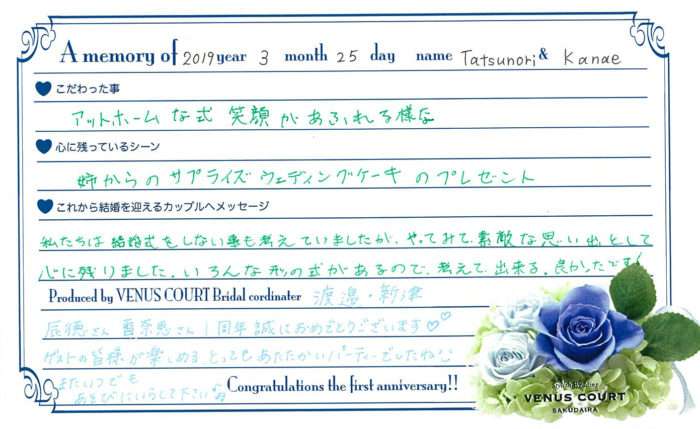 A memory of 2019 year 3 month 25 day name Tatsunori & Kanae
こだわった事
アットホームな式 笑顔があふれる様な
心に残っているシーン
姉からのサプライズウェディングケーキのプレゼント
これから結婚を迎えるカップルへメッセージ
私たちは結婚式をしない事も考えていましたが、やってみて素敵な思い出として
心に残りました。いろんな形の式があるので、考えて出来る。良かったです!
Produced by VENUS COURT Bridal cordinater 渡邉・新津
辰徳さん 香奈恵さん 1周年誠におめでとうございます♡♡
ゲストの皆様が楽しめる、とってもあたたかいパーティーでしたね
またいつでも
あそびにいらして下さい♪
Congratulations the first anniversary!!
Stylish Wedding
VENUS COURT
SAKUDAIRA